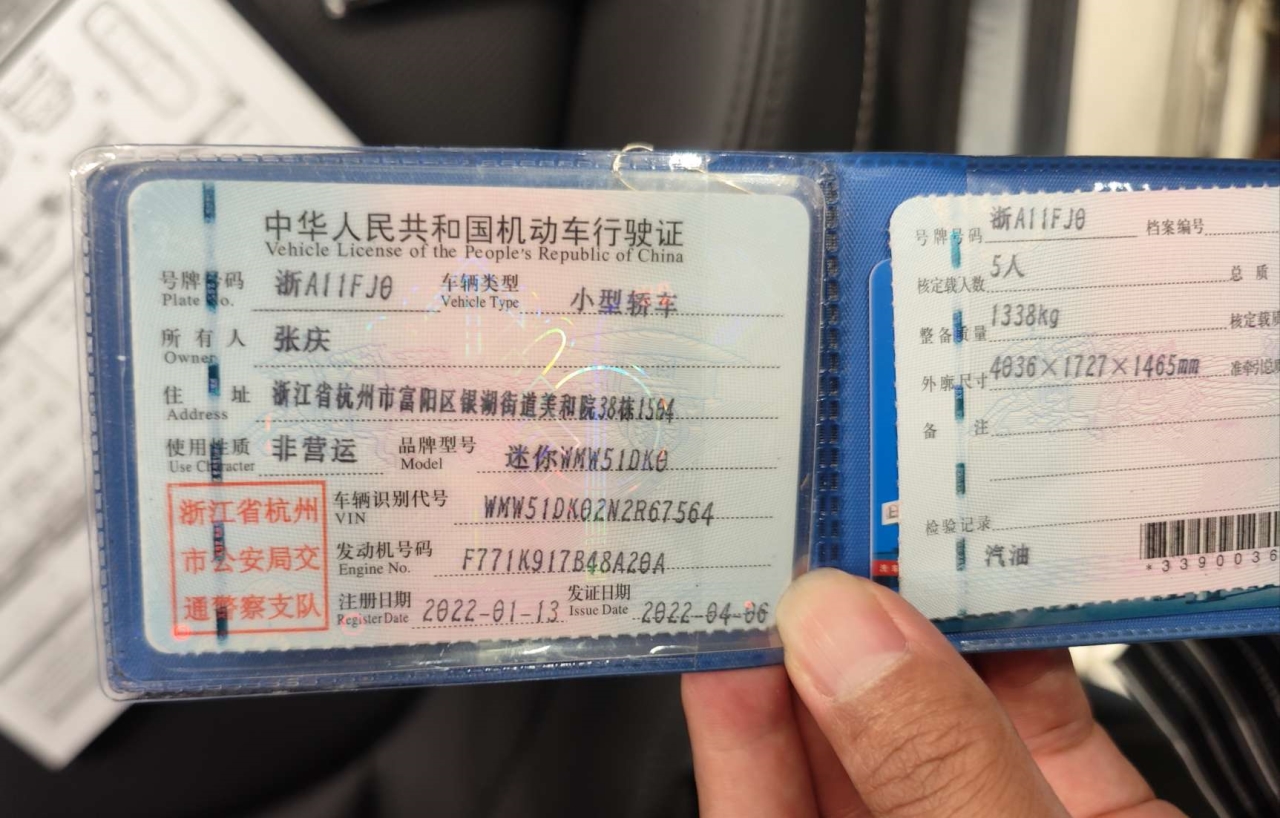 中华人民共和国机动车行驶证
Vehicle License of the People's Republic of China
号牌号码 浙A11FJ0 车辆类型 小型轿车
Plate No. Vehicle Type
所有人 张庆
Owner
住址 浙江省杭州市富阳区银湖街道美和院38栋1564
Address
使用性质 非营运 品牌型号 迷你WMW51DK0
Use Character Model
浙江省杭州
市公安局交
通警察支队
车辆识别代号 WMW51DK02N2R67564
VIN
发动机号码 F771K917B48A20A
Engine No.
注册日期 2022-01-13 发证日期 2022-04-06
Register Date Issue Date
号牌号码 浙A11FJ0 档案编号
核定载人数 5人 总质
整备质量 1338kg 核定载质
外廓尺寸 4036×1727×1465mm 准牵引总
备注
检验记录
汽油
*3390036